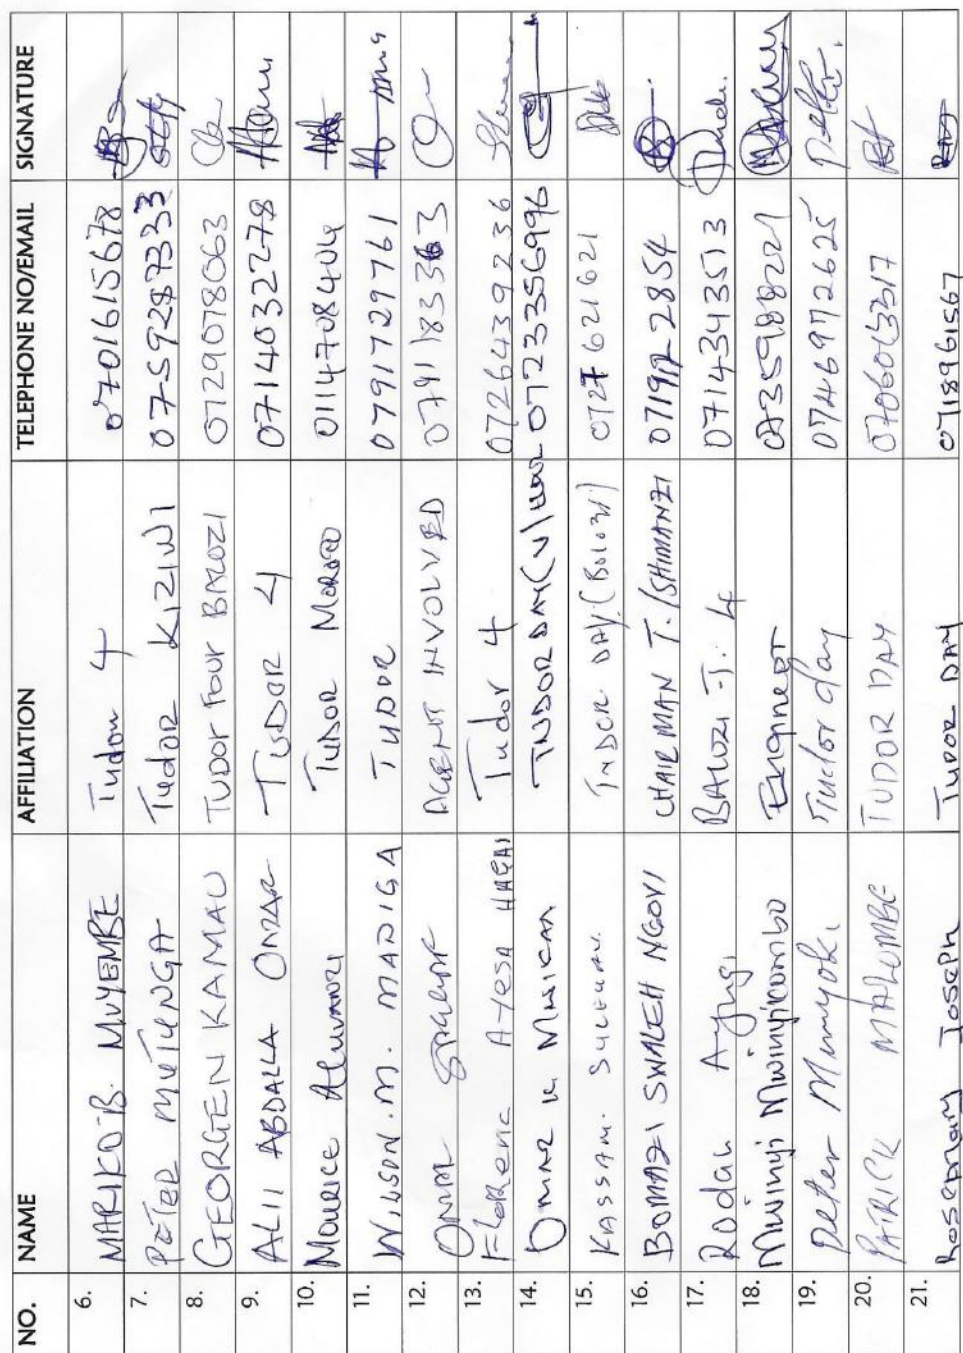 NO. NAME AFFILIATION TELEPHONE NO/EMAIL SIGNATURE
6. MARIKO-B. MUYEMBE Tudor 4 0701615678
7. PETER MUTUNGA Tudor KIZIWI 0759287333
8. GEORGE N KAMAU TUDOR FOUR BALOZI 0729078063
9. ALII ABDALLA OMAR TUDOR 4 0714032278
10. MOURICE TUDOR MOROTO 0114708404
11. WILSON. M. MADIGA TUDOR 0791729761
12. OMAR AGENT INVOLVED
13. FLORENC AYESA HAGAI Tudor 4 0726439236
14. OMAR K MWICAN TUDOR DAY 0723356996
15. KASSAM. SULEIMAN. TUDOR DAY. 0727621621
16. BOMAZI SWALEH NGOVI CHAIRMAN T. /SHIMANZI
17. Rodah BALOZI - T. 4 0714343513
18. Mwinyi Mwinyikombo Engineer
19. Peter Tudor day 0746972625
20. PATRICK TUDOR DAY
21. Rosemary Joseph TUDOR DAY 0718961567